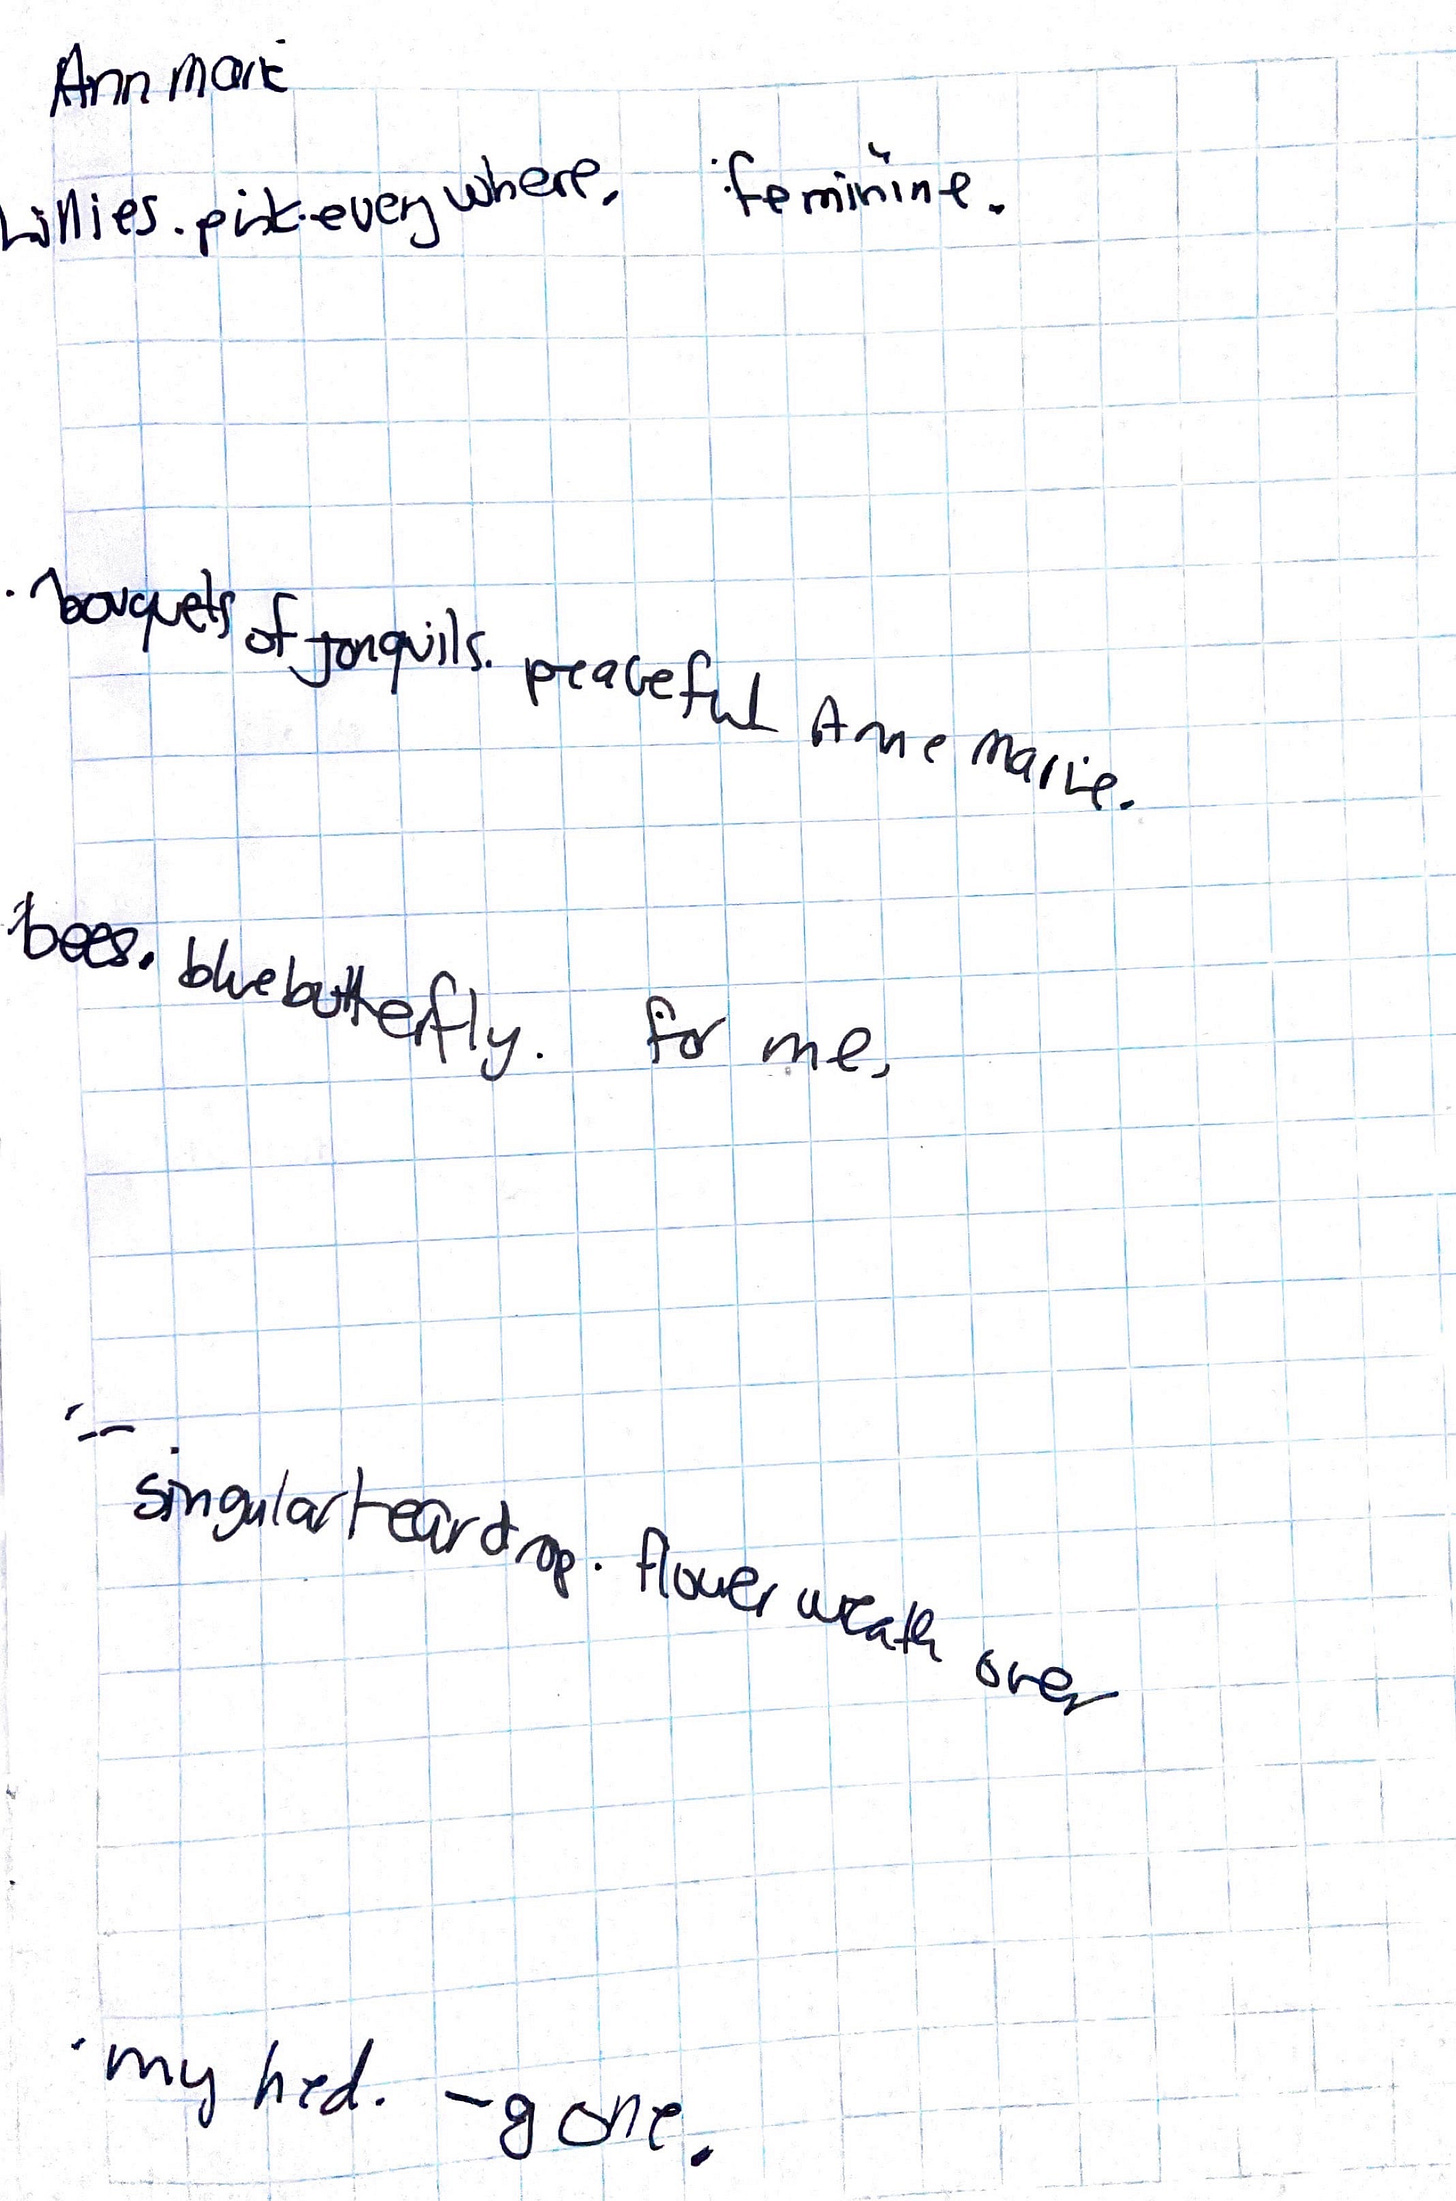 Ann Marie
Lillies. pink everywhere. feminine.
bouquets of jonquils. peaceful Anne Marie.
bees. blue butterfly. for me,
singular teardrop. flower wreath over
my hed. - gone.